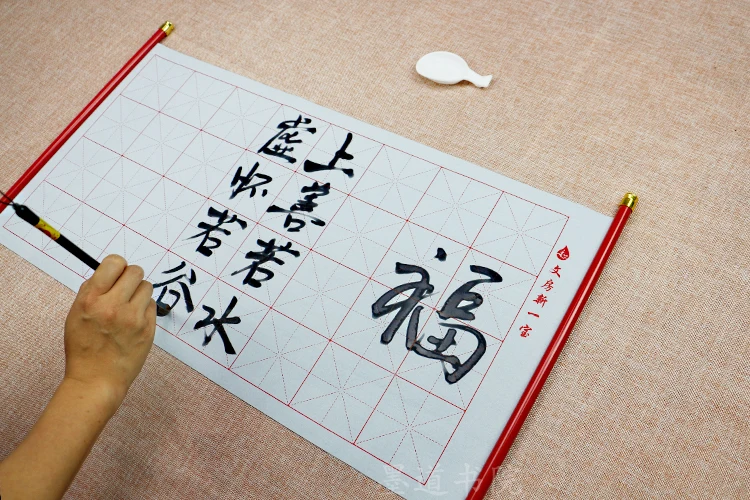 文房新一宝
福
上善若水
虚怀若谷
墨道书院